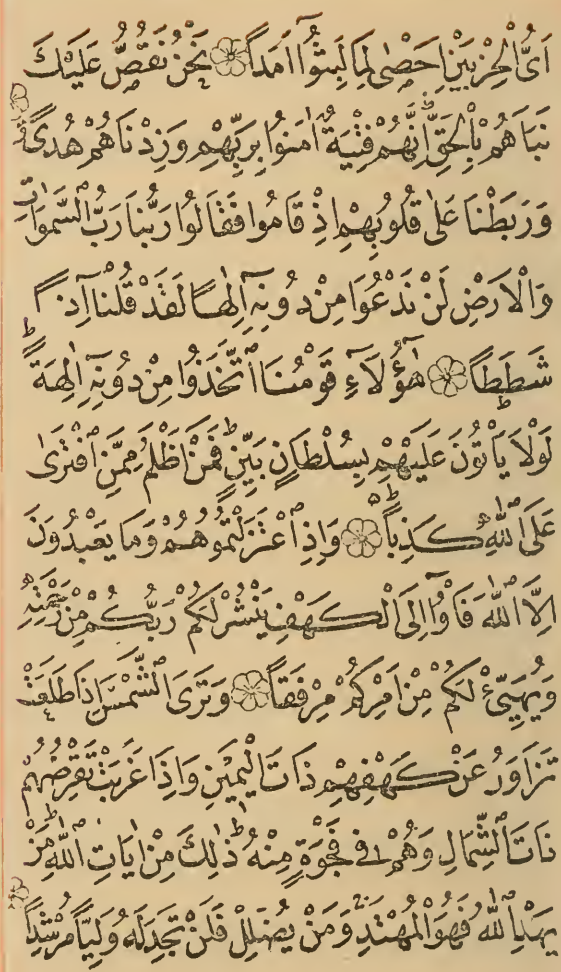 اَيُّ الْحِزْبَيْنِ اَحْصٰى لِمَا لَبِثُٓوا اَمَداً ۞ نَحْنُ نَقُصُّ عَلَيْكَ
نَبَاَهُمْ بِالْحَقِّ اِنَّهُمْ فِتْيَةٌ اٰمَنُوا بِرَبِّهِمْ وَزِدْنَاهُمْ هُدًى ۞
وَرَبَطْنَا عَلٰى قُلُوبِهِمْ اِذْ قَامُوا فَقَالُوا رَبُّنَا رَبُّ السَّمٰوَاتِ
وَالْاَرْضِ لَنْ نَدْعُوَا مِنْ دُونِهٓ اِلٰهاً لَقَدْ قُلْنَٓا اِذاً
شَطَطاً ۞ هٰٓؤُلَٓاءِ قَوْمُنَا اتَّخَذُوا مِنْ دُونِهٓ اٰلِهَةًط
لَوْلَا يَاْتُونَ عَلَيْهِمْ بِسُلْطَانٍ بَيِّنٍط فَمَنْ اَظْلَمُ مِمَّنِ افْتَرٰى
عَلَى اللّٰهِ كَذِباًط ۞ وَاِذِ اعْتَزَلْتُمُوهُمْ وَمَا يَعْبُدُونَ
اِلَّا اللّٰهَ فَاْوُٓا اِلَى الْكَهْفِ يَنْشُرْ لَكُمْ رَبُّكُمْ مِنْ رَحْمَتِهٖ
وَيُهَيِّئْ لَكُمْ مِنْ اَمْرِكُمْ مِرْفَقاً ۞ وَتَرَى الشَّمْسَ اِذَا طَلَعَتْ
تَزَاوَرُ عَنْ كَهْفِهِمْ ذَاتَ الْيَمِينِ وَاِذَا غَرَبَتْ تَقْرِضُهُمْ
ذَاتَ الشِّمَالِ وَهُمْ فِي فَجْوَةٍ مِنْهُط ذٰلِكَ مِنْ اٰيَاتِ اللّٰهِط مَنْ
يَهْدِ اللّٰهُ فَهُوَ الْمُهْتَدِ وَمَنْ يُضْلِلْ فَلَنْ تَجِدَ لَهُ وَلِيًّا مُرْشِداً ۞